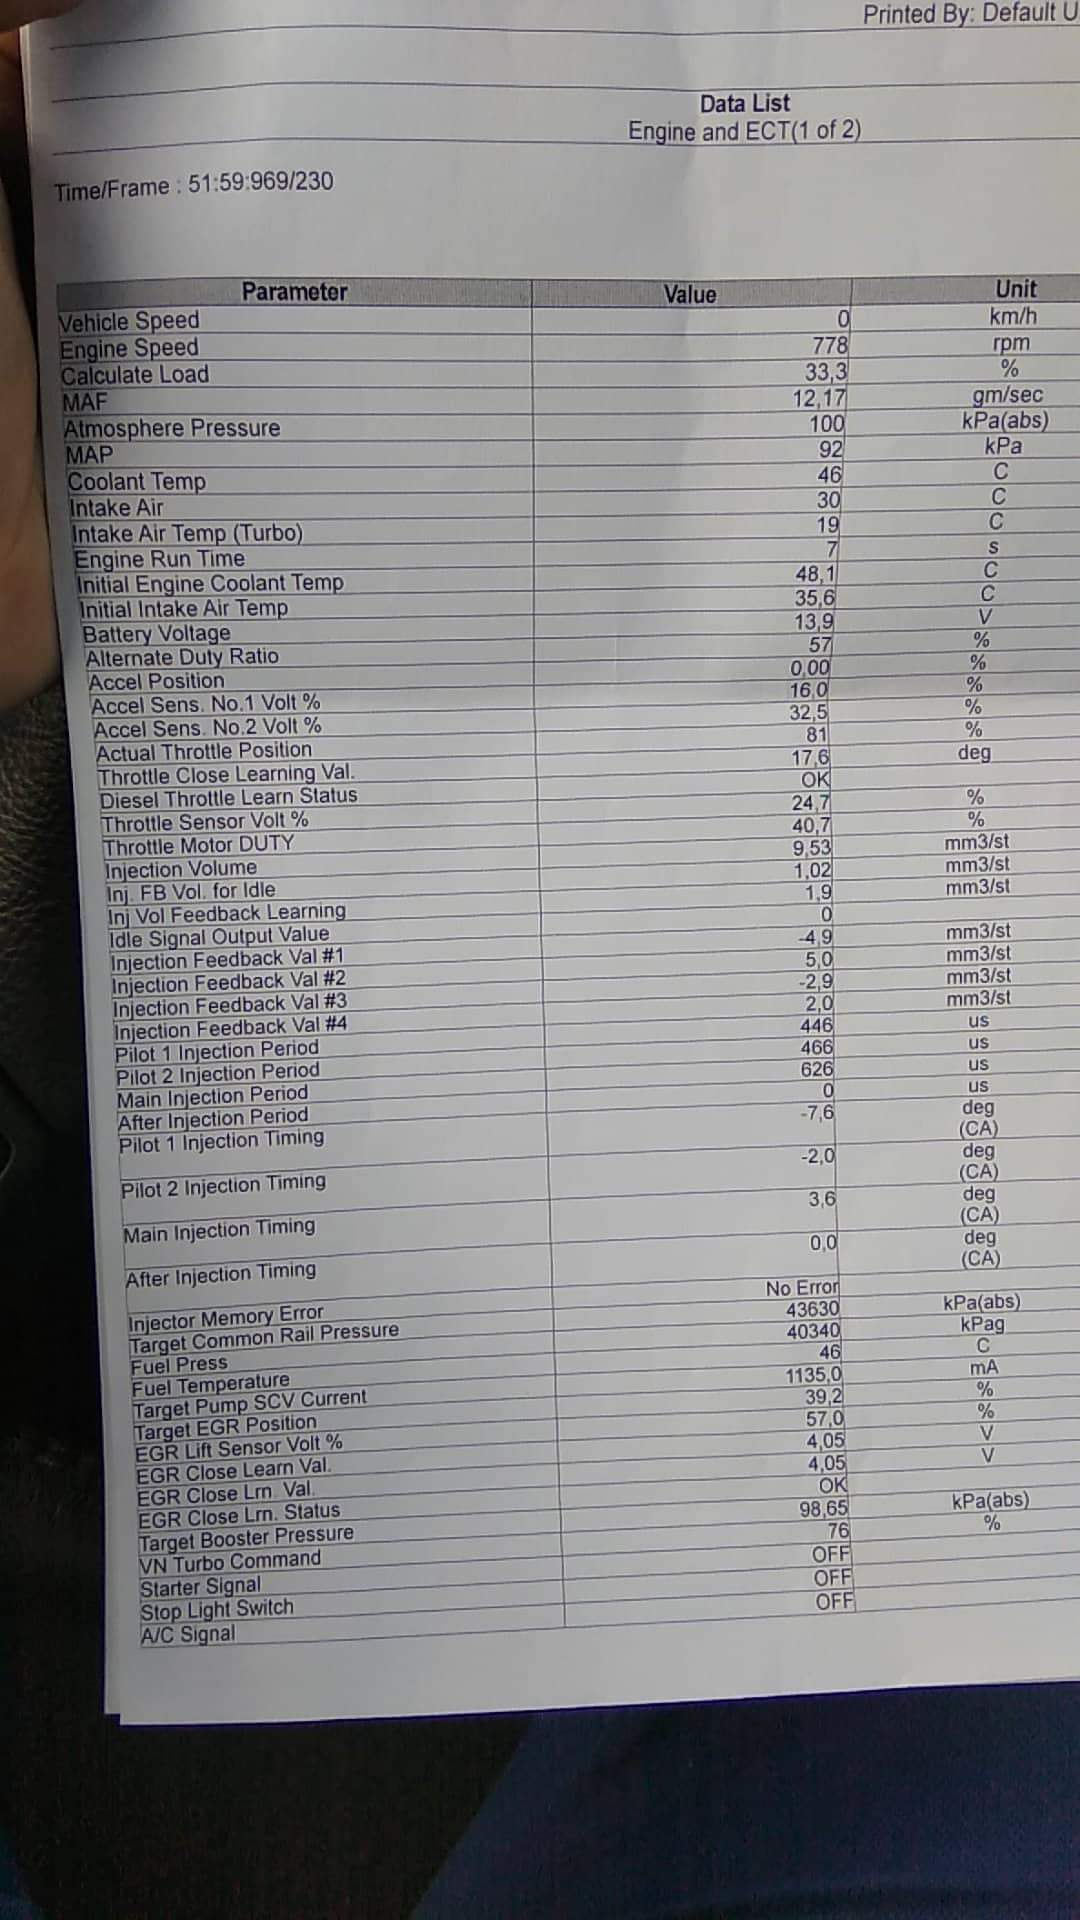 Printed By: Default U
Data List
Engine and ECT(1 of 2)
Time/Frame : 51:59:969/230
Parameter Value Unit
Vehicle Speed 0 km/h
Engine Speed 778 rpm
Calculate Load 33,3 %
MAF 12,17 gm/sec
Atmosphere Pressure 100 kPa(abs)
MAP 92 kPa
Coolant Temp 46 C
Intake Air 30 C
Intake Air Temp (Turbo) 19 C
Engine Run Time 7 s
Initial Engine Coolant Temp 48,1 C
Initial Intake Air Temp 35,6 C
Battery Voltage 13,9 V
Alternate Duty Ratio 57 %
Accel Position 0,00 %
Accel Sens. No.1 Volt % 16,0 %
Accel Sens. No.2 Volt % 32,5 %
Actual Throttle Position 81 %
Throttle Close Learning Val. 17,6 deg
Diesel Throttle Learn Status OK
Throttle Sensor Volt % 24,7 %
Throttle Motor DUTY 40,7 %
Injection Volume 9,53 mm3/st
Inj. FB Vol. for Idle 1,02 mm3/st
Inj Vol Feedback Learning 1,9 mm3/st
Idle Signal Output Value 0
Injection Feedback Val #1 -4,9 mm3/st
Injection Feedback Val #2 5,0 mm3/st
Injection Feedback Val #3 -2,9 mm3/st
Injection Feedback Val #4 2,0 mm3/st
Pilot 1 Injection Period 446 us
Pilot 2 Injection Period 466 us
Main Injection Period 626 us
After Injection Period 0 us
Pilot 1 Injection Timing -7,6 deg
(CA)
Pilot 2 Injection Timing -2,0 deg
(CA)
Main Injection Timing 3,6 deg
(CA)
After Injection Timing 0,0 deg
(CA)
Injector Memory Error No Error
Target Common Rail Pressure 43630 kPa(abs)
Fuel Press 40340 kPag
Fuel Temperature 46 C
Target Pump SCV Current 1135,0 mA
Target EGR Position 39,2 %
EGR Lift Sensor Volt % 57,0 %
EGR Close Learn Val. 4,05 V
EGR Close Lrn. Val. 4,05 V
EGR Close Lrn. Status OK
Target Booster Pressure 98,65 kPa(abs)
VN Turbo Command 76 %
Starter Signal OFF
Stop Light Switch OFF
A/C Signal OFF